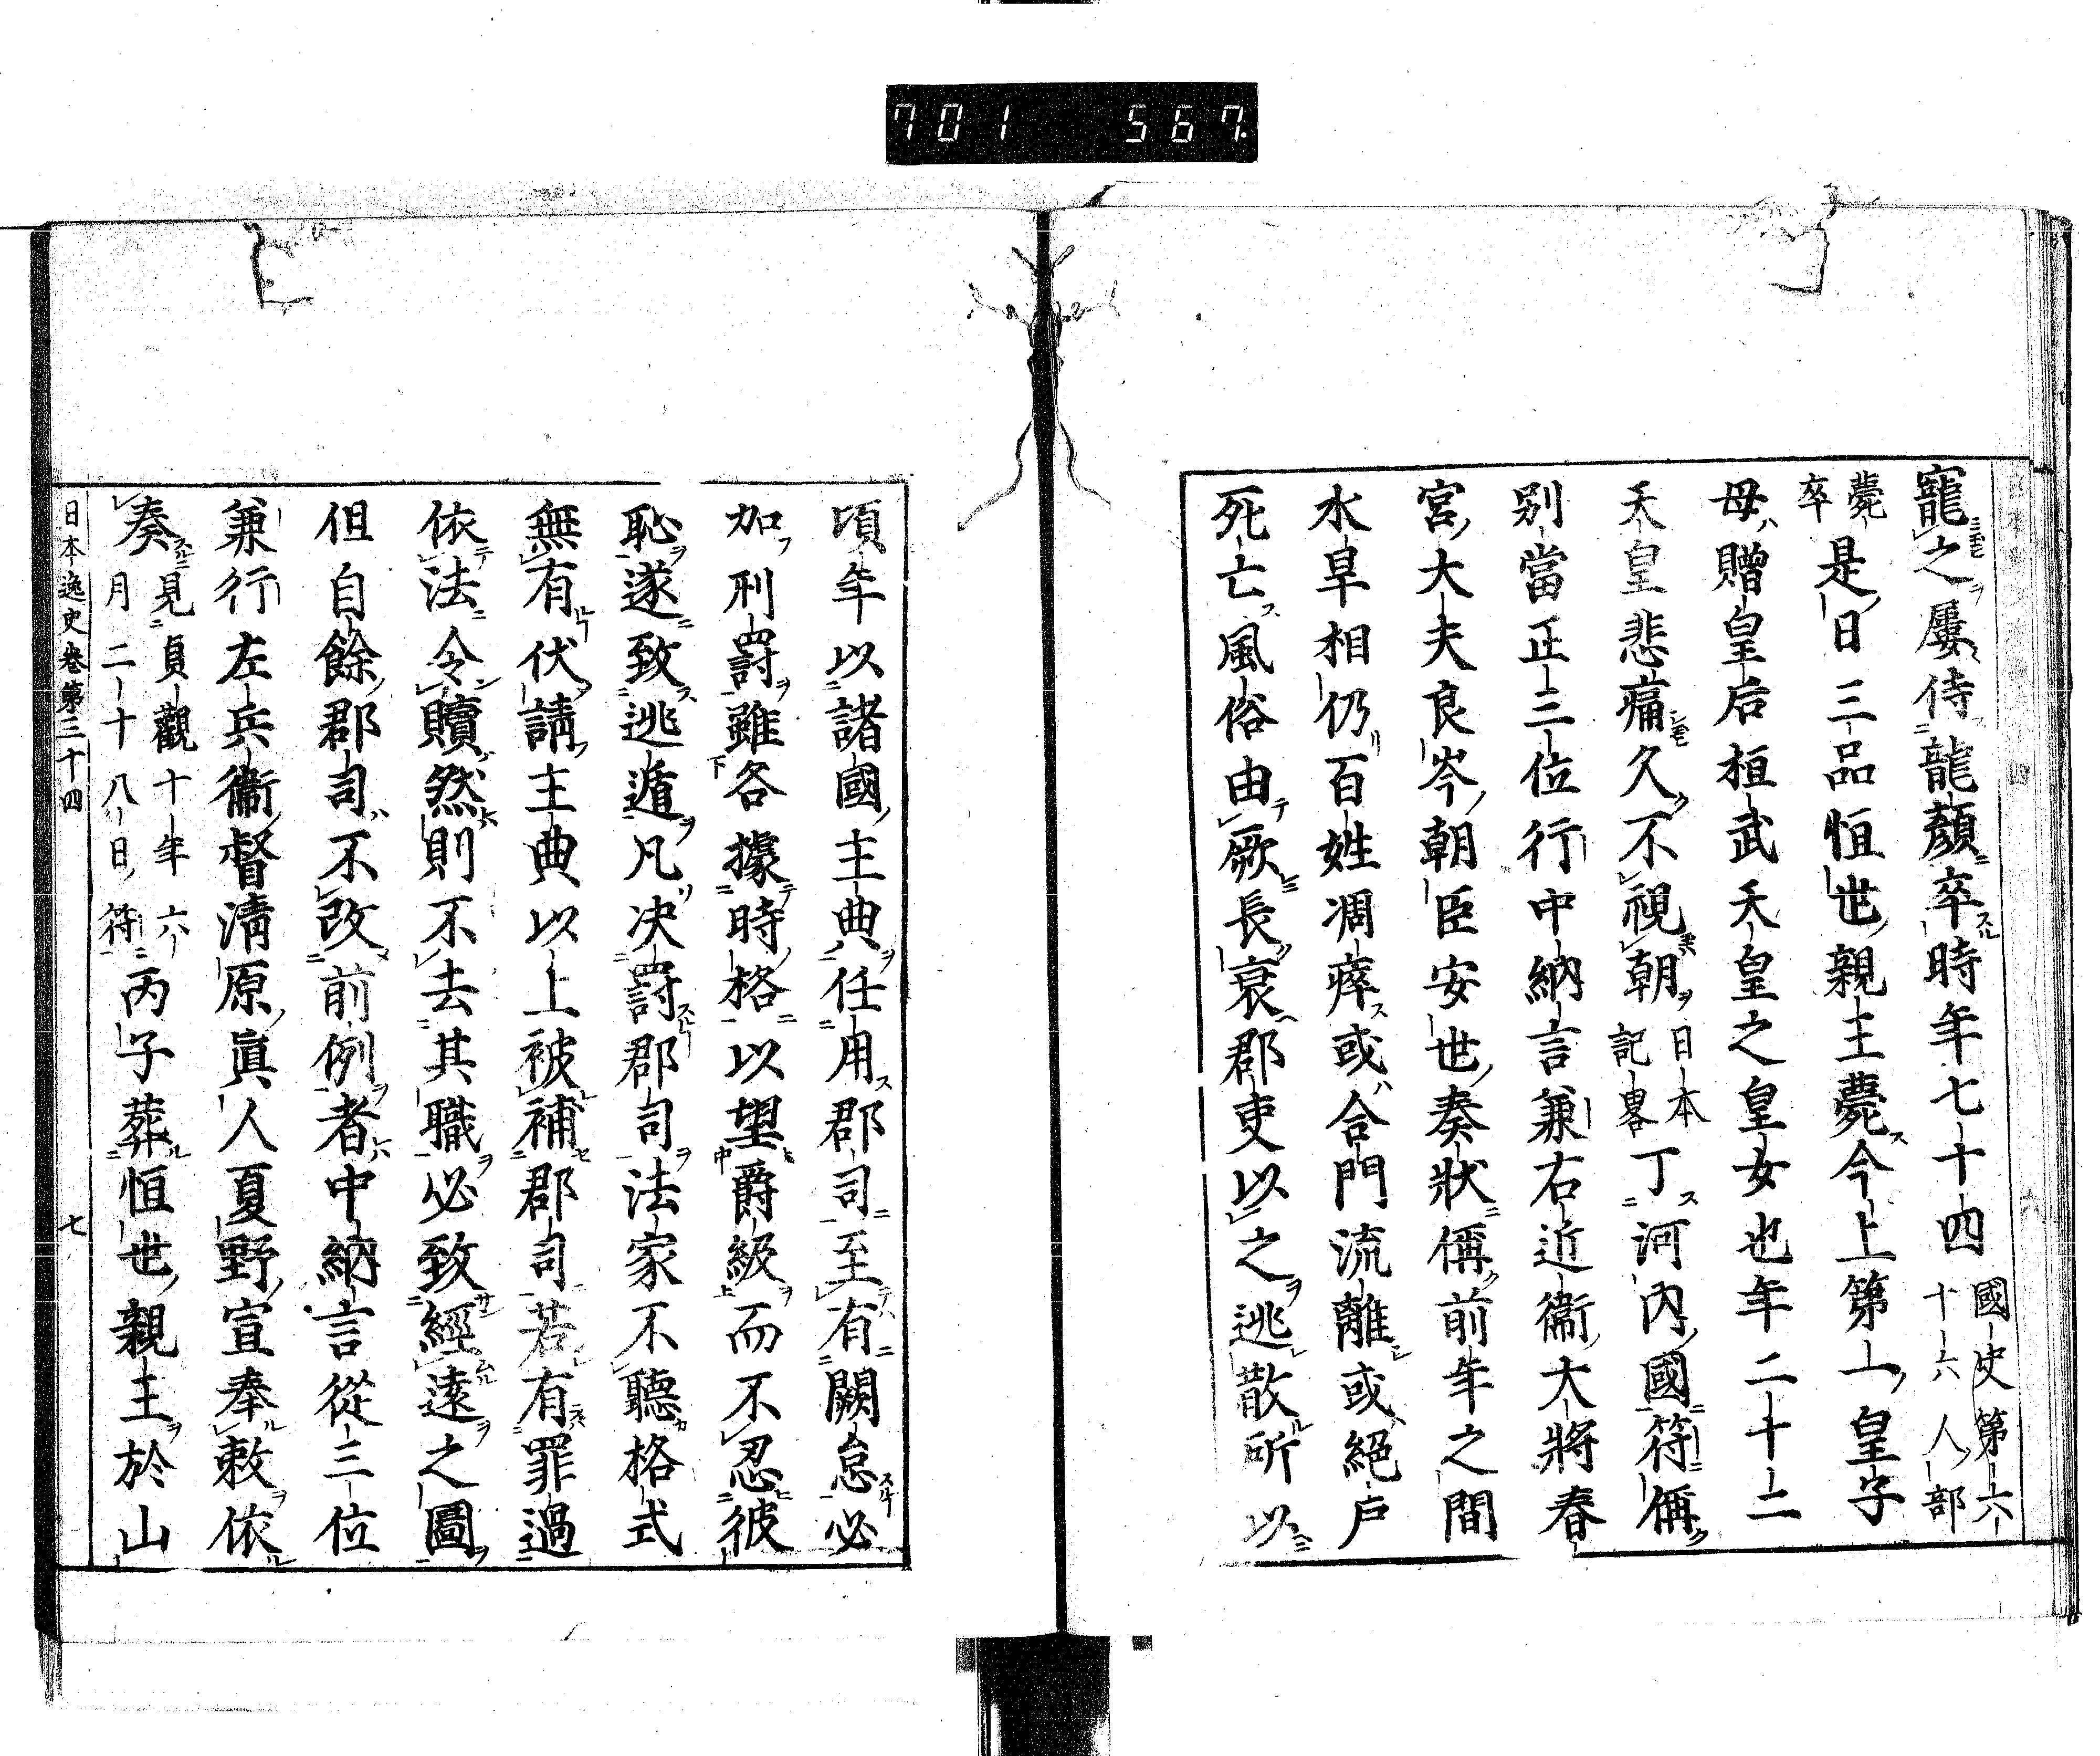 701 567
寵之屢侍龍顏卒時年七十四國史第六十六人部
薨卒是日三品恒世親王薨今上第一皇子
母贈皇后桓武天皇之皇女也年二十二
天皇悲痛久不視朝日本記畧丁河內國符偁
別當正三位行中納言兼右近衞大將春
宮大夫良岑朝臣安世奏狀偁前年之間
水旱相仍百姓凋瘁或合門流離或絕戶
死亡風俗由厥長衰郡吏以之逃散所以
頃年以諸國主典任用郡司至有闕怠必
加刑罰雖各據時格以望爵級而不忍彼
恥遂致逃遁凡决罰郡司法家不聽格式
無有伏請主典以上被補郡司若有罪過
依法令贖然則不去其職必致經遠之圖
但自餘郡司不改前例者中納言從三位
兼行左兵衞督淸原眞人夏野宣奉敕依
奏見貞觀十年六月二十八日符丙子葬恒世親王於山
日本逸史卷第三十四 七